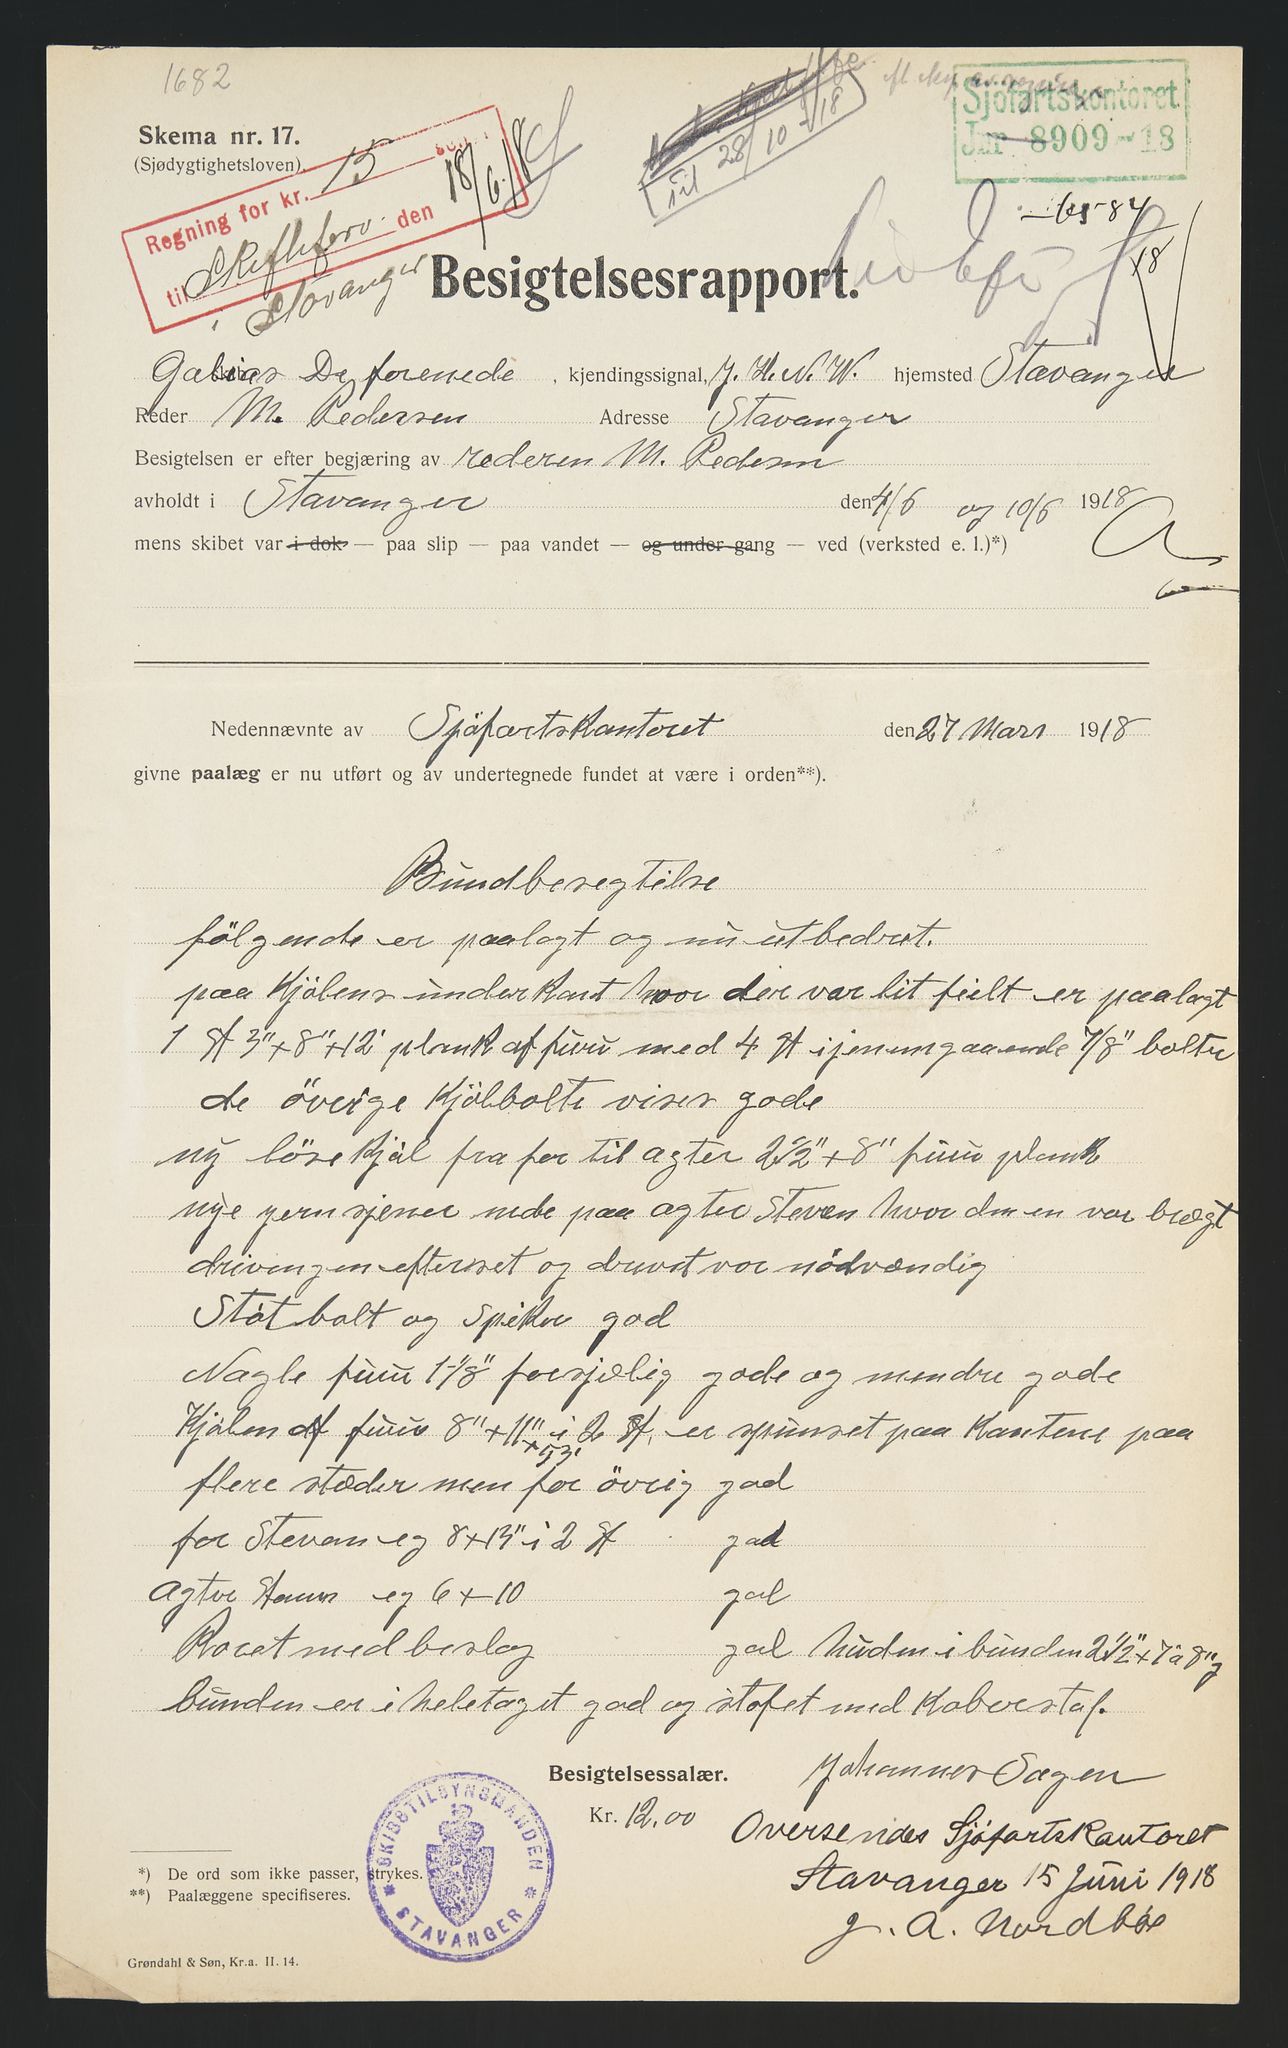 1682
Skema nr. 17.
(Sjødygtighetsloven).
Regning for kr. 15
til Skipsfører den 18/6.18
i Stavanger
til 28/10-18
Sjöfartskontoret
Jnr 8909-18
Besigtelsesrapport.
Galeas De forenede, kjendingssignal, J. H. N. W. hjemsted Stavanger
Reder M. Pedersen Adresse Stavanger
Besigtelsen er efter begjæring av rederen M. Pedersen
avholdt i Stavanger den 4/6 og 10/6 1918
mens skibet var i dok — paa slip — paa vandet — og under gang — ved (verksted e. l.)*)
Nedennævnte av Sjöfartskontoret den 27 Mars 1918
givne paalæg er nu utført og av undertegnede fundet at være i orden**).
Bundbesegtilse
fölgende er paalagt og nu utbedret.
paa Kjölens underkant hvor der var lit feilt er paalagt
1 st 3"+8"+12' plank af furu med 4 st ijenemgaaende 7/8" bolter
de överige Kjölbolte vises gode
ny löse Kjöl fra for til agter 2½"+8" furu plank
nye jernsjener nede paa agter Steven hvor den en var brægt
drivengen efterset og drevet vor nödvændig
Stöt bolt og Spiker god
Nagle furu 1-1/8" forsjælig gode og mendre gode
Kjölen af furu 8"+11" +53' i 2 st. er spunset paa Kantene paa
flere stæder men for övrig god
for Steven eg 8+13" i 2 st god
agter Stevn eg 6+10 god
Roret med beslag god huden i bunden 2½"+7 a 8"
bunden er i heletaget god og stofet med Koberstof.
Besigtelsessalær.
Kr. 12,00
Johannes Sagen
Oversendes Sjöfartskantoret
Stavanger 15 Juni 1918
G. A. Nordböe
SKIBSTILSYNSMANDEN
STAVANGER
*) De ord som ikke passer, strykes.
**) Paalæggene specifiseres.
Grøndahl & Søn, Kr.a. II. 14.